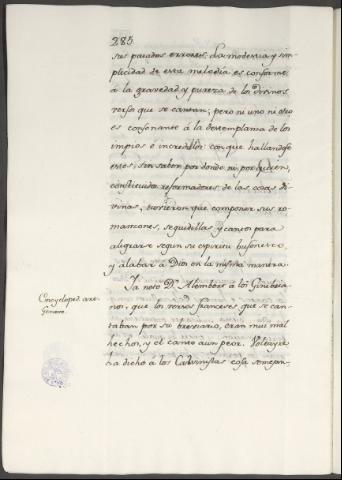 285
sus pasados errores. La modestia y sim-
plicidad de esta melodia es conforme
á la gravedad y pureza de los divinos
versos que se cantan; pero ni uno ni otro
es consonante á la destemplanza de los
impios é incredulos: con que hallandose
estos, sin saber por donde ni por quien,
constituidos reformadores de las cosas di-
vinas, tuvieron que componer sus ro-
mances, seguidillas y cantos para
alegrarse segun su espiritu bufonesco,
y alabar á Dios en la misma manera.
Ya notó D'Alembert á los Ginebri-
nos, que los versos franceses que se can-
taban por su breviario, eran mui mal
hechos, y el canto aun peor. Voltayre
ha dicho á los Calvinistas cosa semejan-
Encycloped. art.
Geneve.